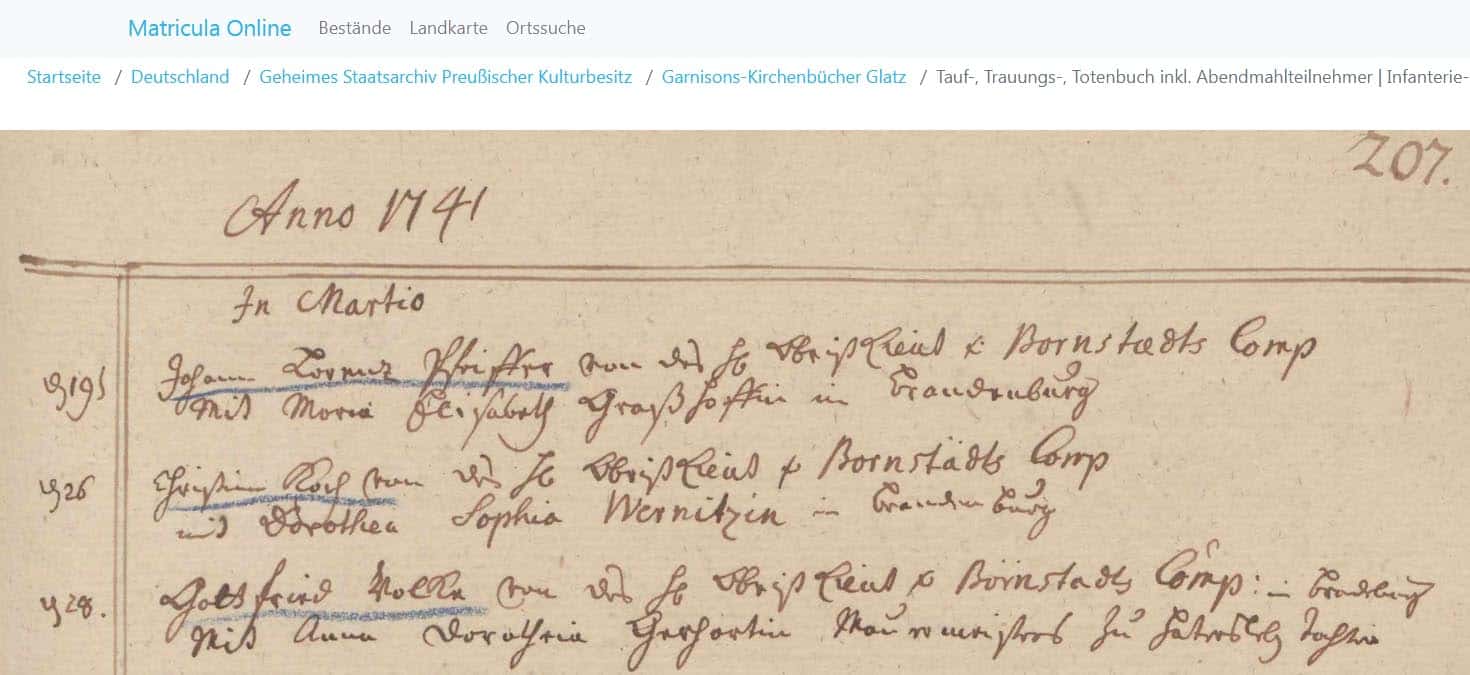 Matricula Online Bestände Landkarte Ortssuche
Startseite / Deutschland / Geheimes Staatsarchiv Preußischer Kulturbesitz / Garnisons-Kirchenbücher Glatz / Tauf-, Trauungs-, Totenbuch inkl. Abendmahlteilnehmer | Infanterie-
207.
Anno 1741
In Martio
Johann Lorentz Pfeiffer von des H ObristLieut v Bornstædts Comp
mit Maria Elisabeth Graßhoffin in Brandenburg
26 Christian Koch von des H ObristLieut v Bornstädts Comp
mit Dorothea Sophia Wernitzin in Brandenburg
28. Gottfried Nolke von des H Obrist Lieut v Bornstadts Comp: in
Mit Anna Dorothein Gerhartin Mauermeisters zu Tochter